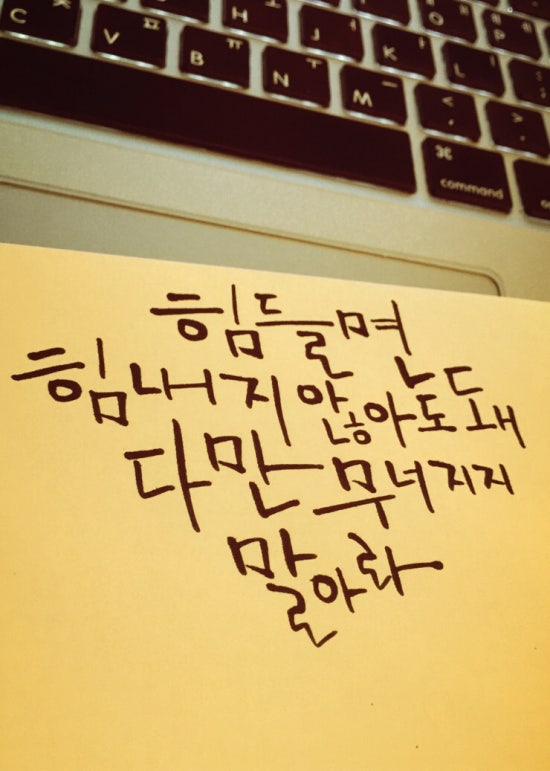 O ㅐ P ㅔ
H ㅗ J ㅓ K ㅏ L ㅣ : ;
C ㅊ V ㅍ B ㅠ N ㅜ M ㅡ < , > .
⌘ command
힘들면
힘내지 않아도 돼
다만 무너지지
말아라